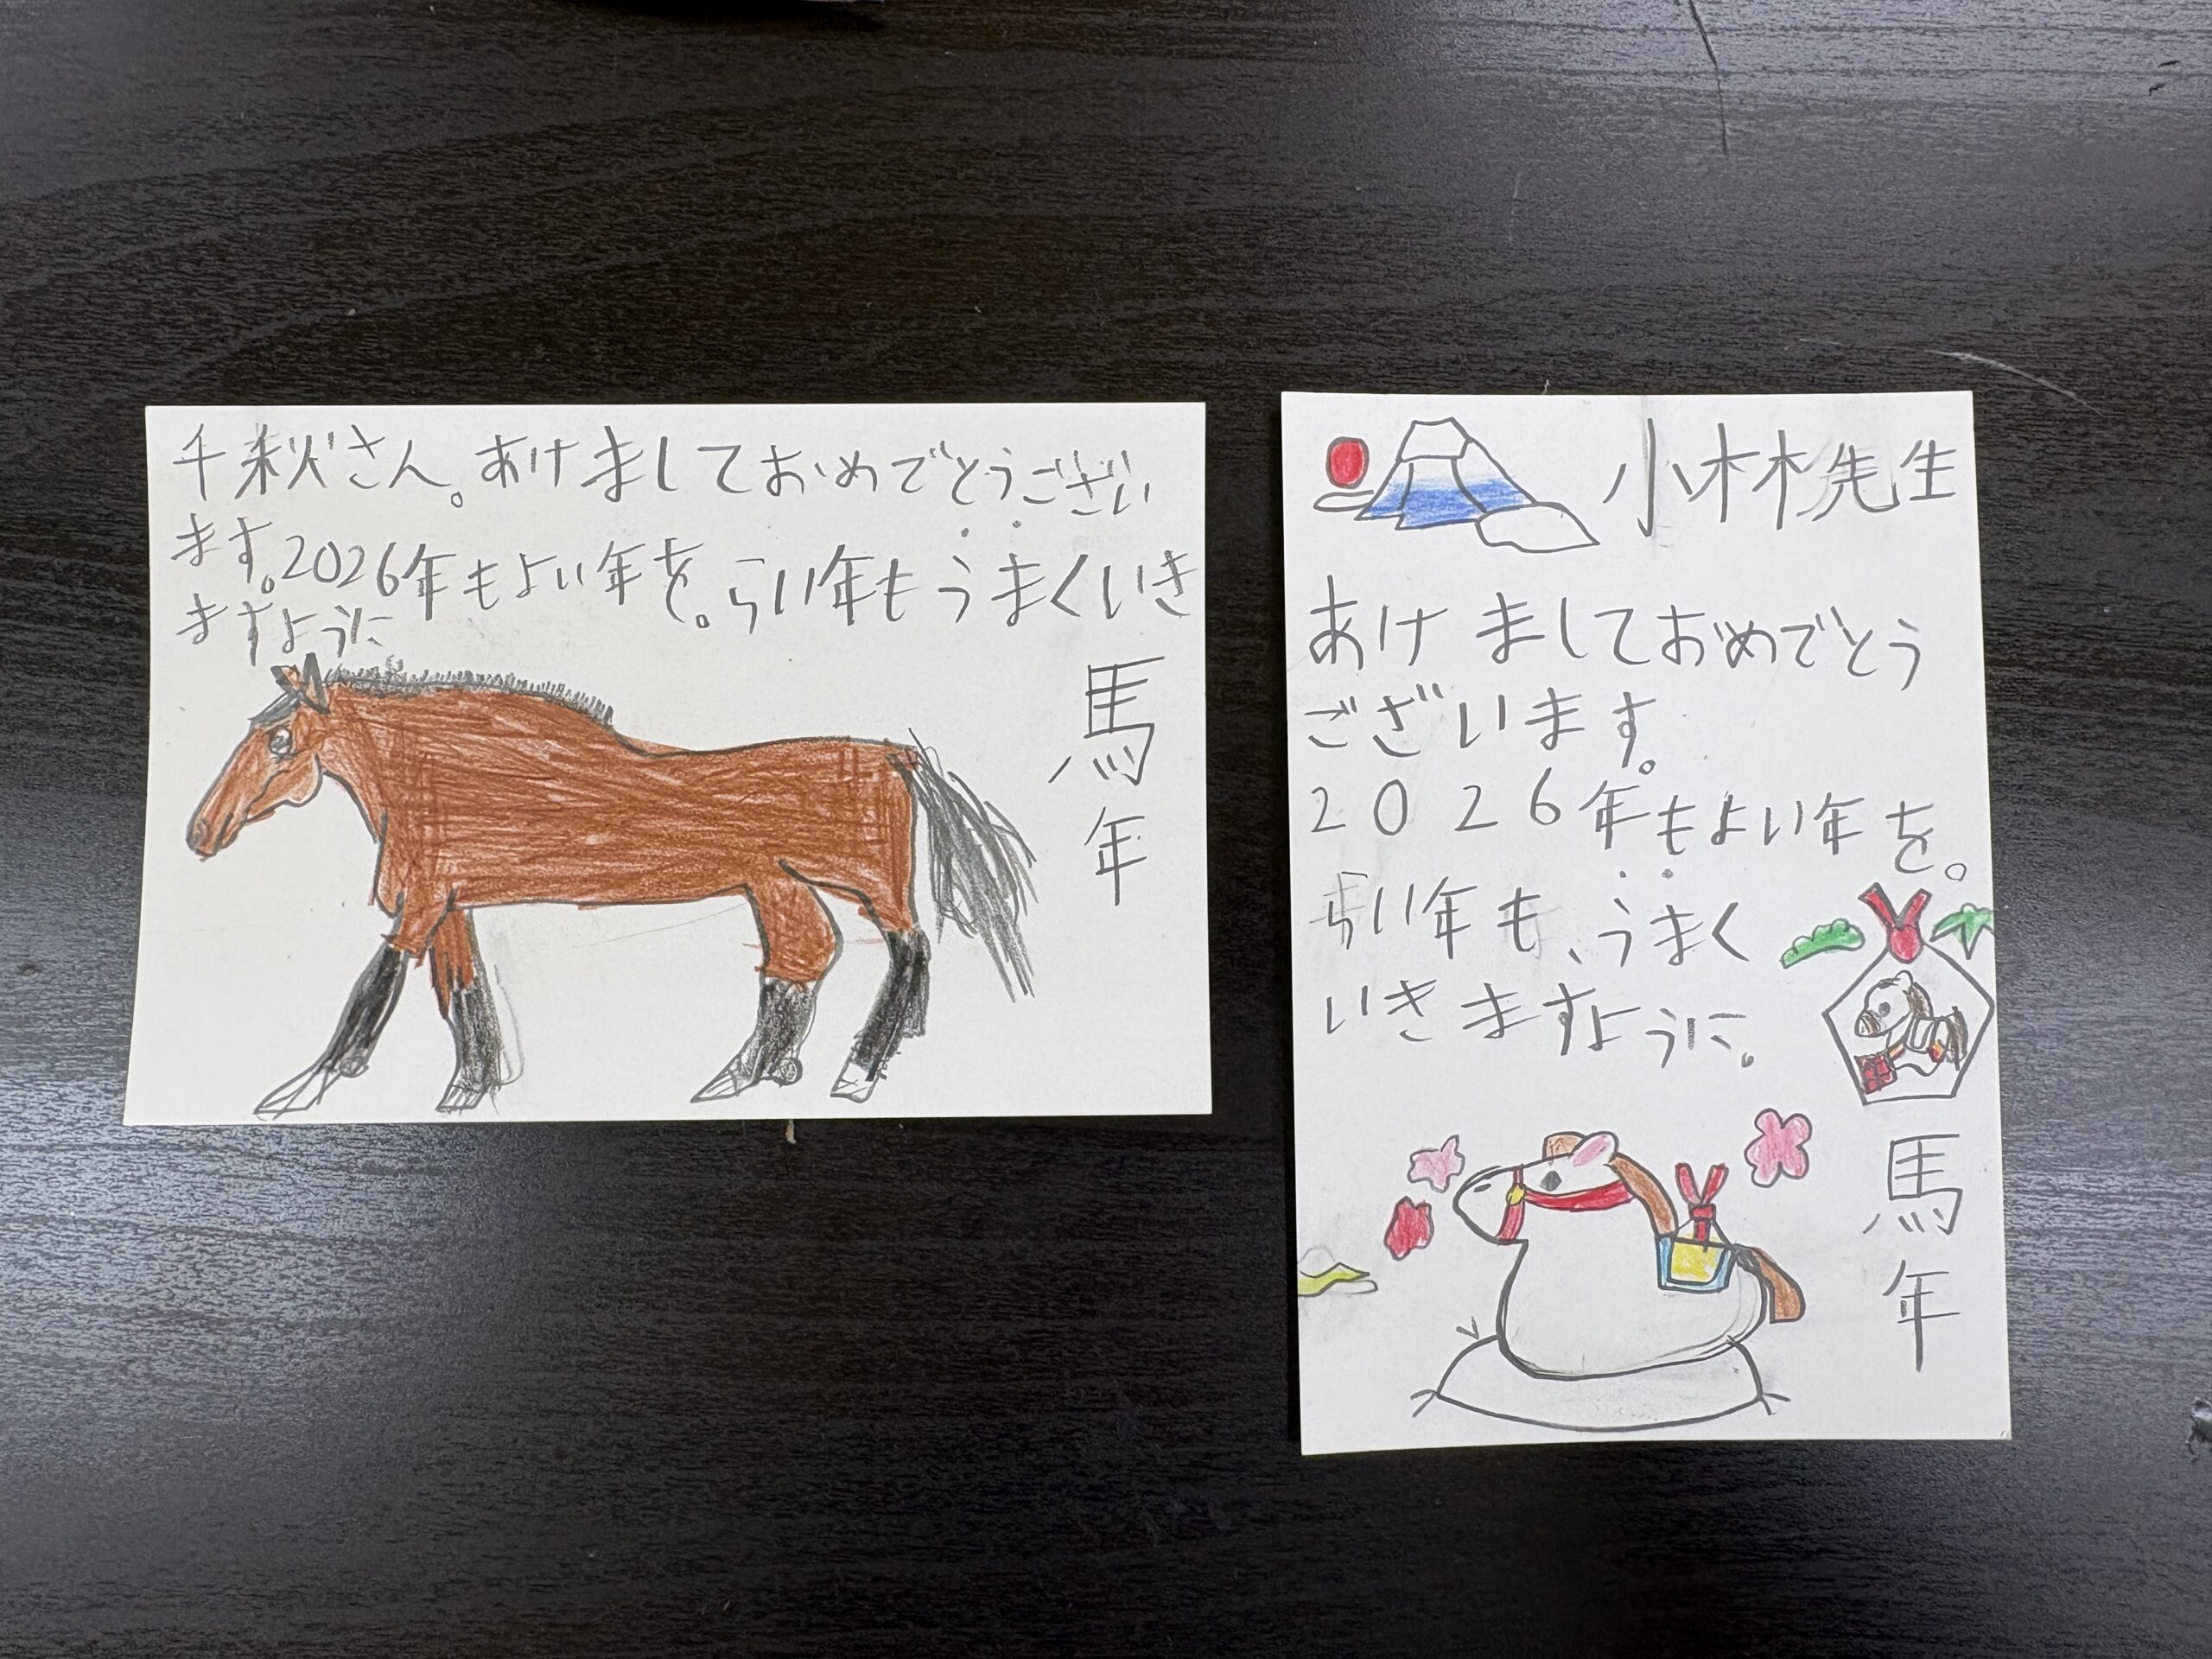 千秋さん。あけましておめでとうござい
ます。2026年もよい年を。らい年もうまくいき
ますように
馬
年
小林先生
あけましておめでとう
ございます。
2026年もよい年を。
らい年も、うまく
いきますように。
馬
年